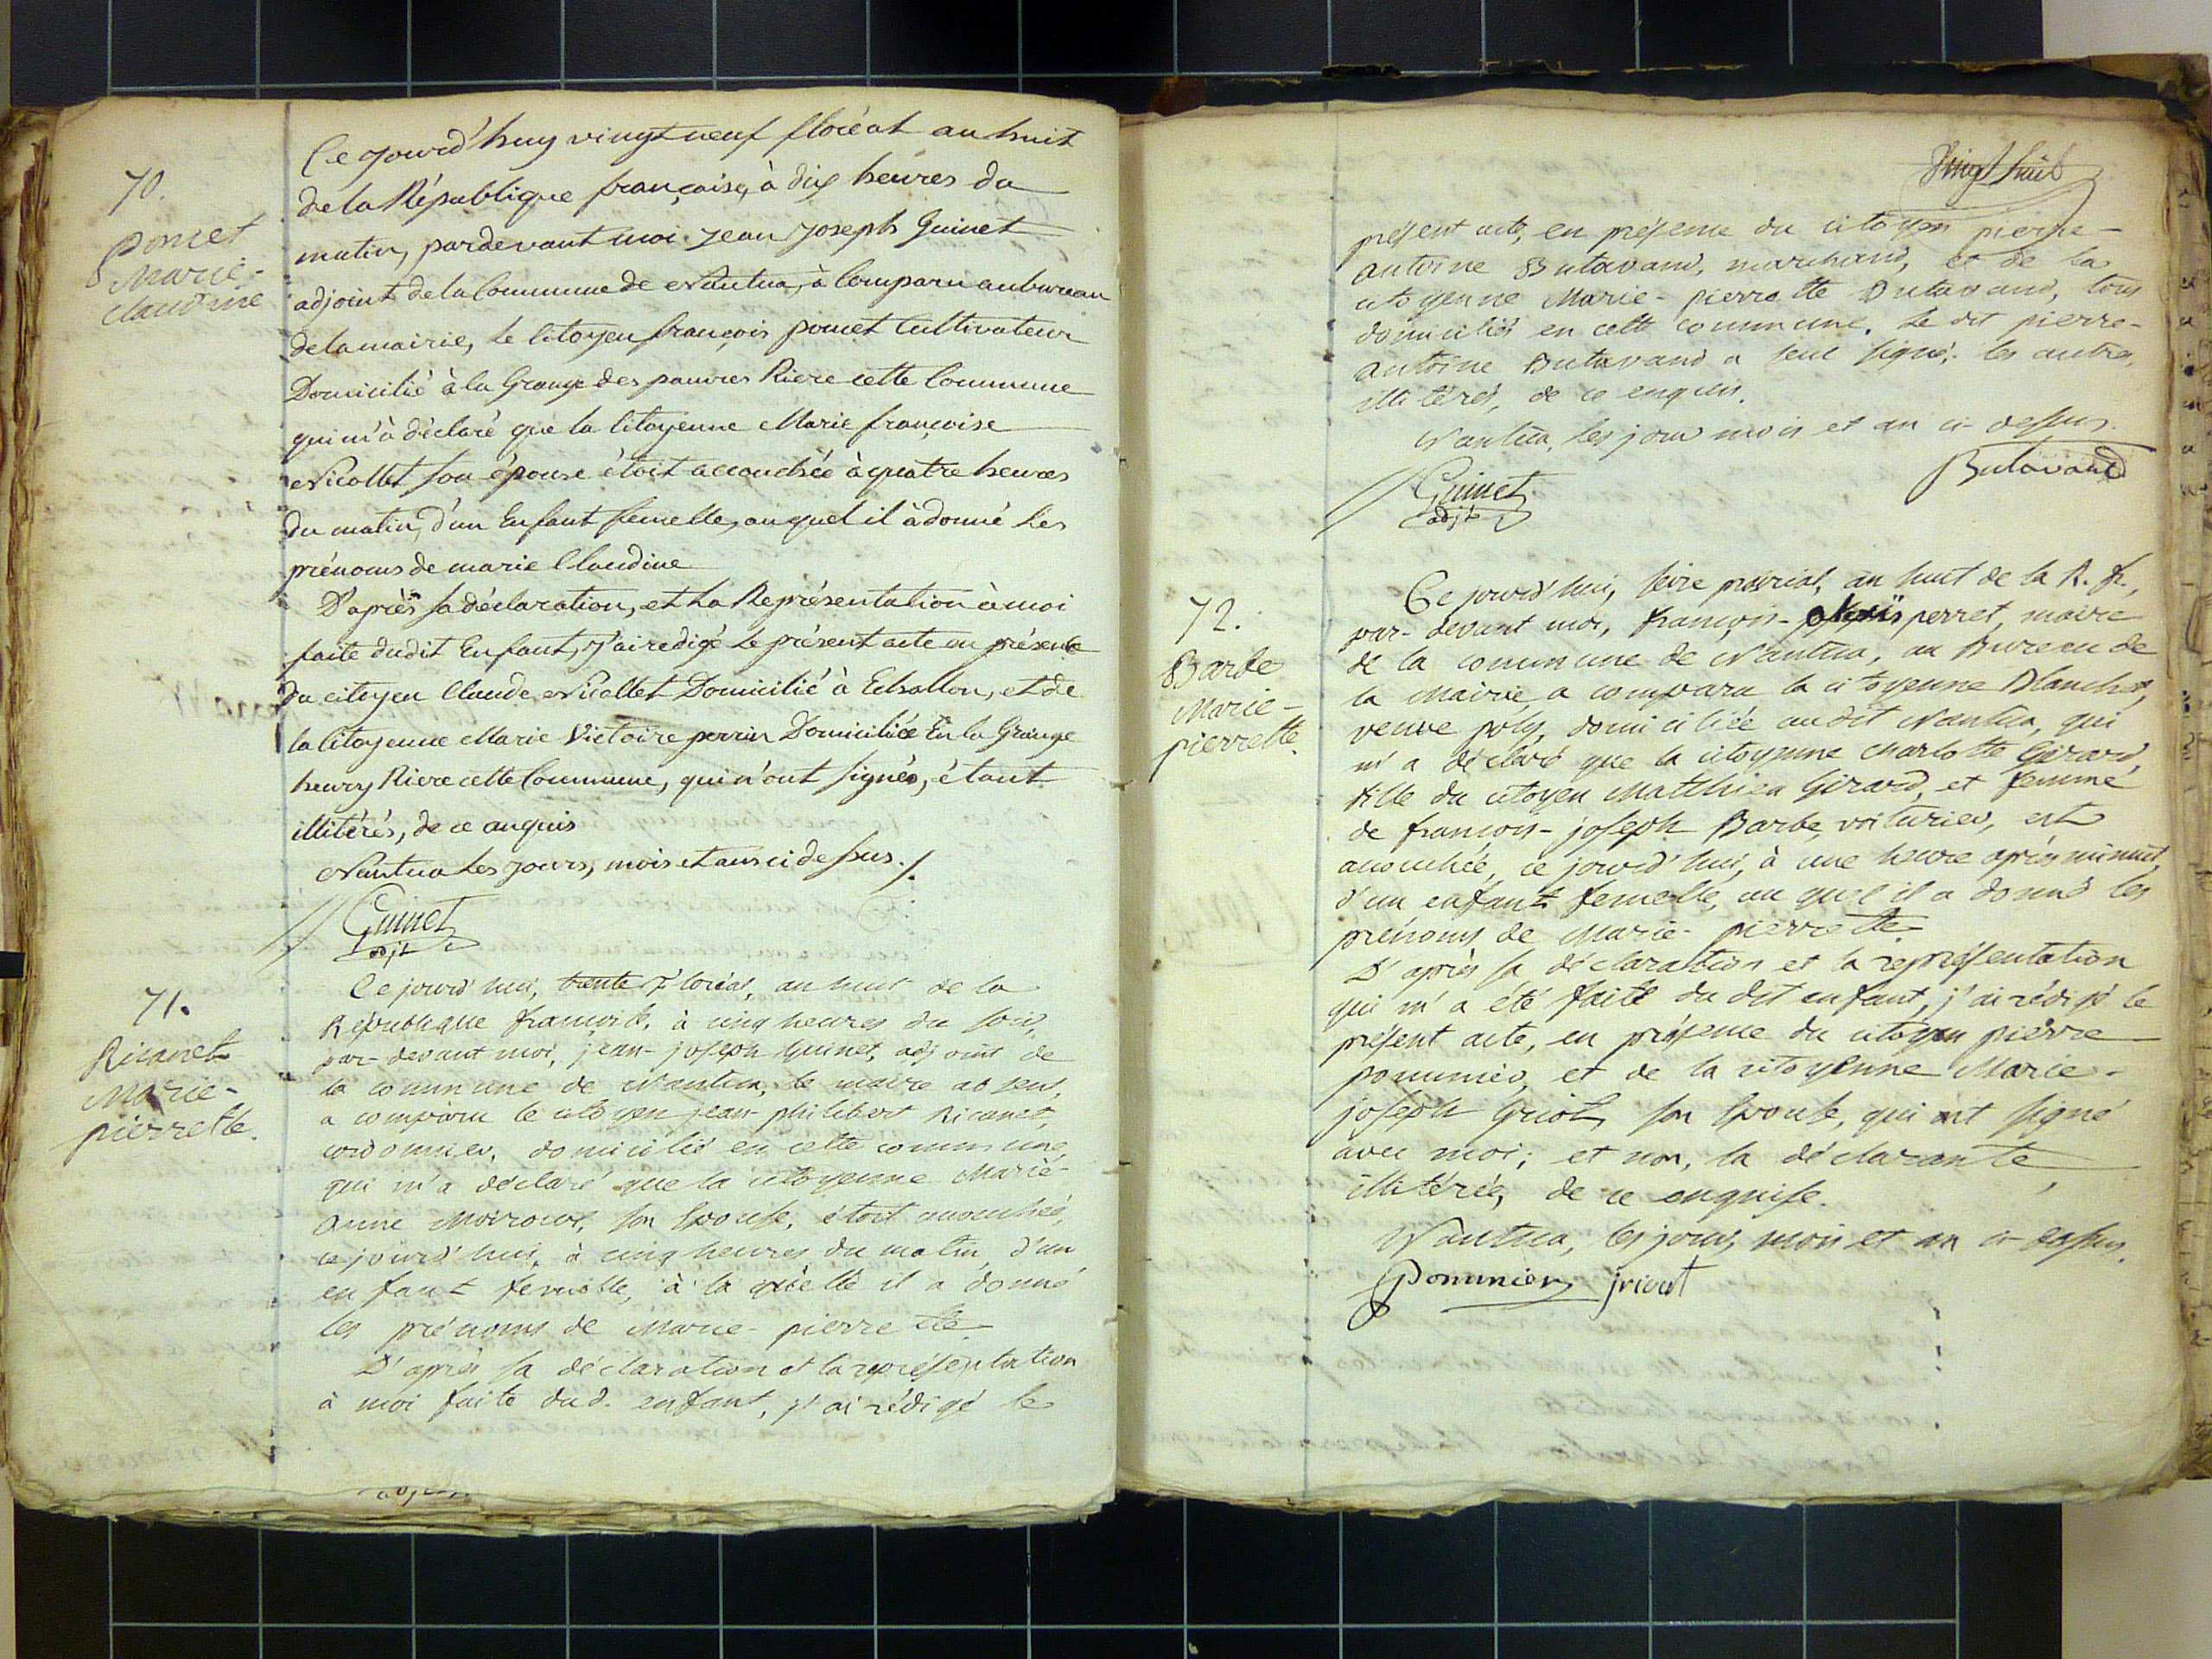 70.
poncet
Marie-
claudine
Ce Jourd'huy vingt neuf floréal an huit
de la République française, à dix heures du
matin, pardevant moi Jean Joseph Guinet
adjoint de la Commune de Nantua, à Comparu au bureau
de la mairie, le Citoyen françois poncet Cultivateur
Domicilié à la Grange des pauvres Riere cette Commune
qui m'à déclaré que la Citoyenne Marie françoise
Nicollet son épouse étoit accouchée à quatre heures
du matin, d'un Enfant femelle, auquel il à donné les
prénoms de marie Claudine
D'après sa déclaration, et la Représentation à moi
faite dudit Enfant, J'ai redigé le présent acte en présence
du citoyen Claude Nicollet Domicilié à Echallon, et de
la Citoyenne Marie Victoire perrin Domiciliée En la Grange
henry Riere cette Commune, qui n'ont signés, étant
illitérés, de ce enquis
Nantua les Jours, mois et ans ci dessus ./.
Guinet
adjt
71.
Ricanet
Marie-
pierrette.
Ce jourd'hui, trente Floréal, an huit de la
République française, à cinq heures du soir,
par-devant moi, jean-joseph Guinet, adjoint de
la commune de Nantua, le maire absent,
a comparu le citoyen jean-philibert Ricanet,
cordonnier, domicilié en cette commune,
qui m'a déclaré que la citoyenne Marie-
Anne Moiroux, son Epouse, étoit accouchée,
ce jourd'hui, à cinq heures du matin, d'un
enfant femelle, à laquelle il a donné
les prénoms de Marie-pierrette.
D'après sa déclaration et la représentation
à moi faite dud. enfant, j'ai rédigé le
Vingt huit
présent acte, en présence du citoyen pierre-
antoine Butavand, marchand, et de la
citoyenne Marie-pierrette Butavand, tous
domiciliés en cette commune. Le dit pierre-
antoine Butavand a seul signé; les autres,
illitérés, de ce enquis.
Nantua, les jour mois et an ci-dessus.
Butavand
Guinet
adjt
72.
Barbe
Marie-
pierrette.
Ce jourd'hui, seize prairial, an huit de la R. fr.,
par-devant moi, françois- perret, maire
de la commune de Nantua, au Bureau de
la Mairie, a comparu la citoyenne Blanchet,
veuve poly, domiciliée audit Nantua, qui
m'a déclaré que la citoyenne charlotte Girard,
fille du citoyen Matthieu Girard, et femme
de françois-joseph Barbe, voiturier, est
accouchée, ce jourd'hui, à une heure après minuit,
d'un enfant femelle, au quel il a donné les
prénoms de Marie-pierrette.
D'après sa déclaration et la représentation
qui m'a été faite du dit enfant, j'ai rédigé le
présent acte, en présence du citoyen pierre
pommier, et de la citoyenne Marie-
joseph Griot, son Epouse, qui ont signé
avec moi; et non, la déclarante,
illitérée, de ce enquise.
Nantua, les jours, mois et an ci-dessus.
Pommier jriout